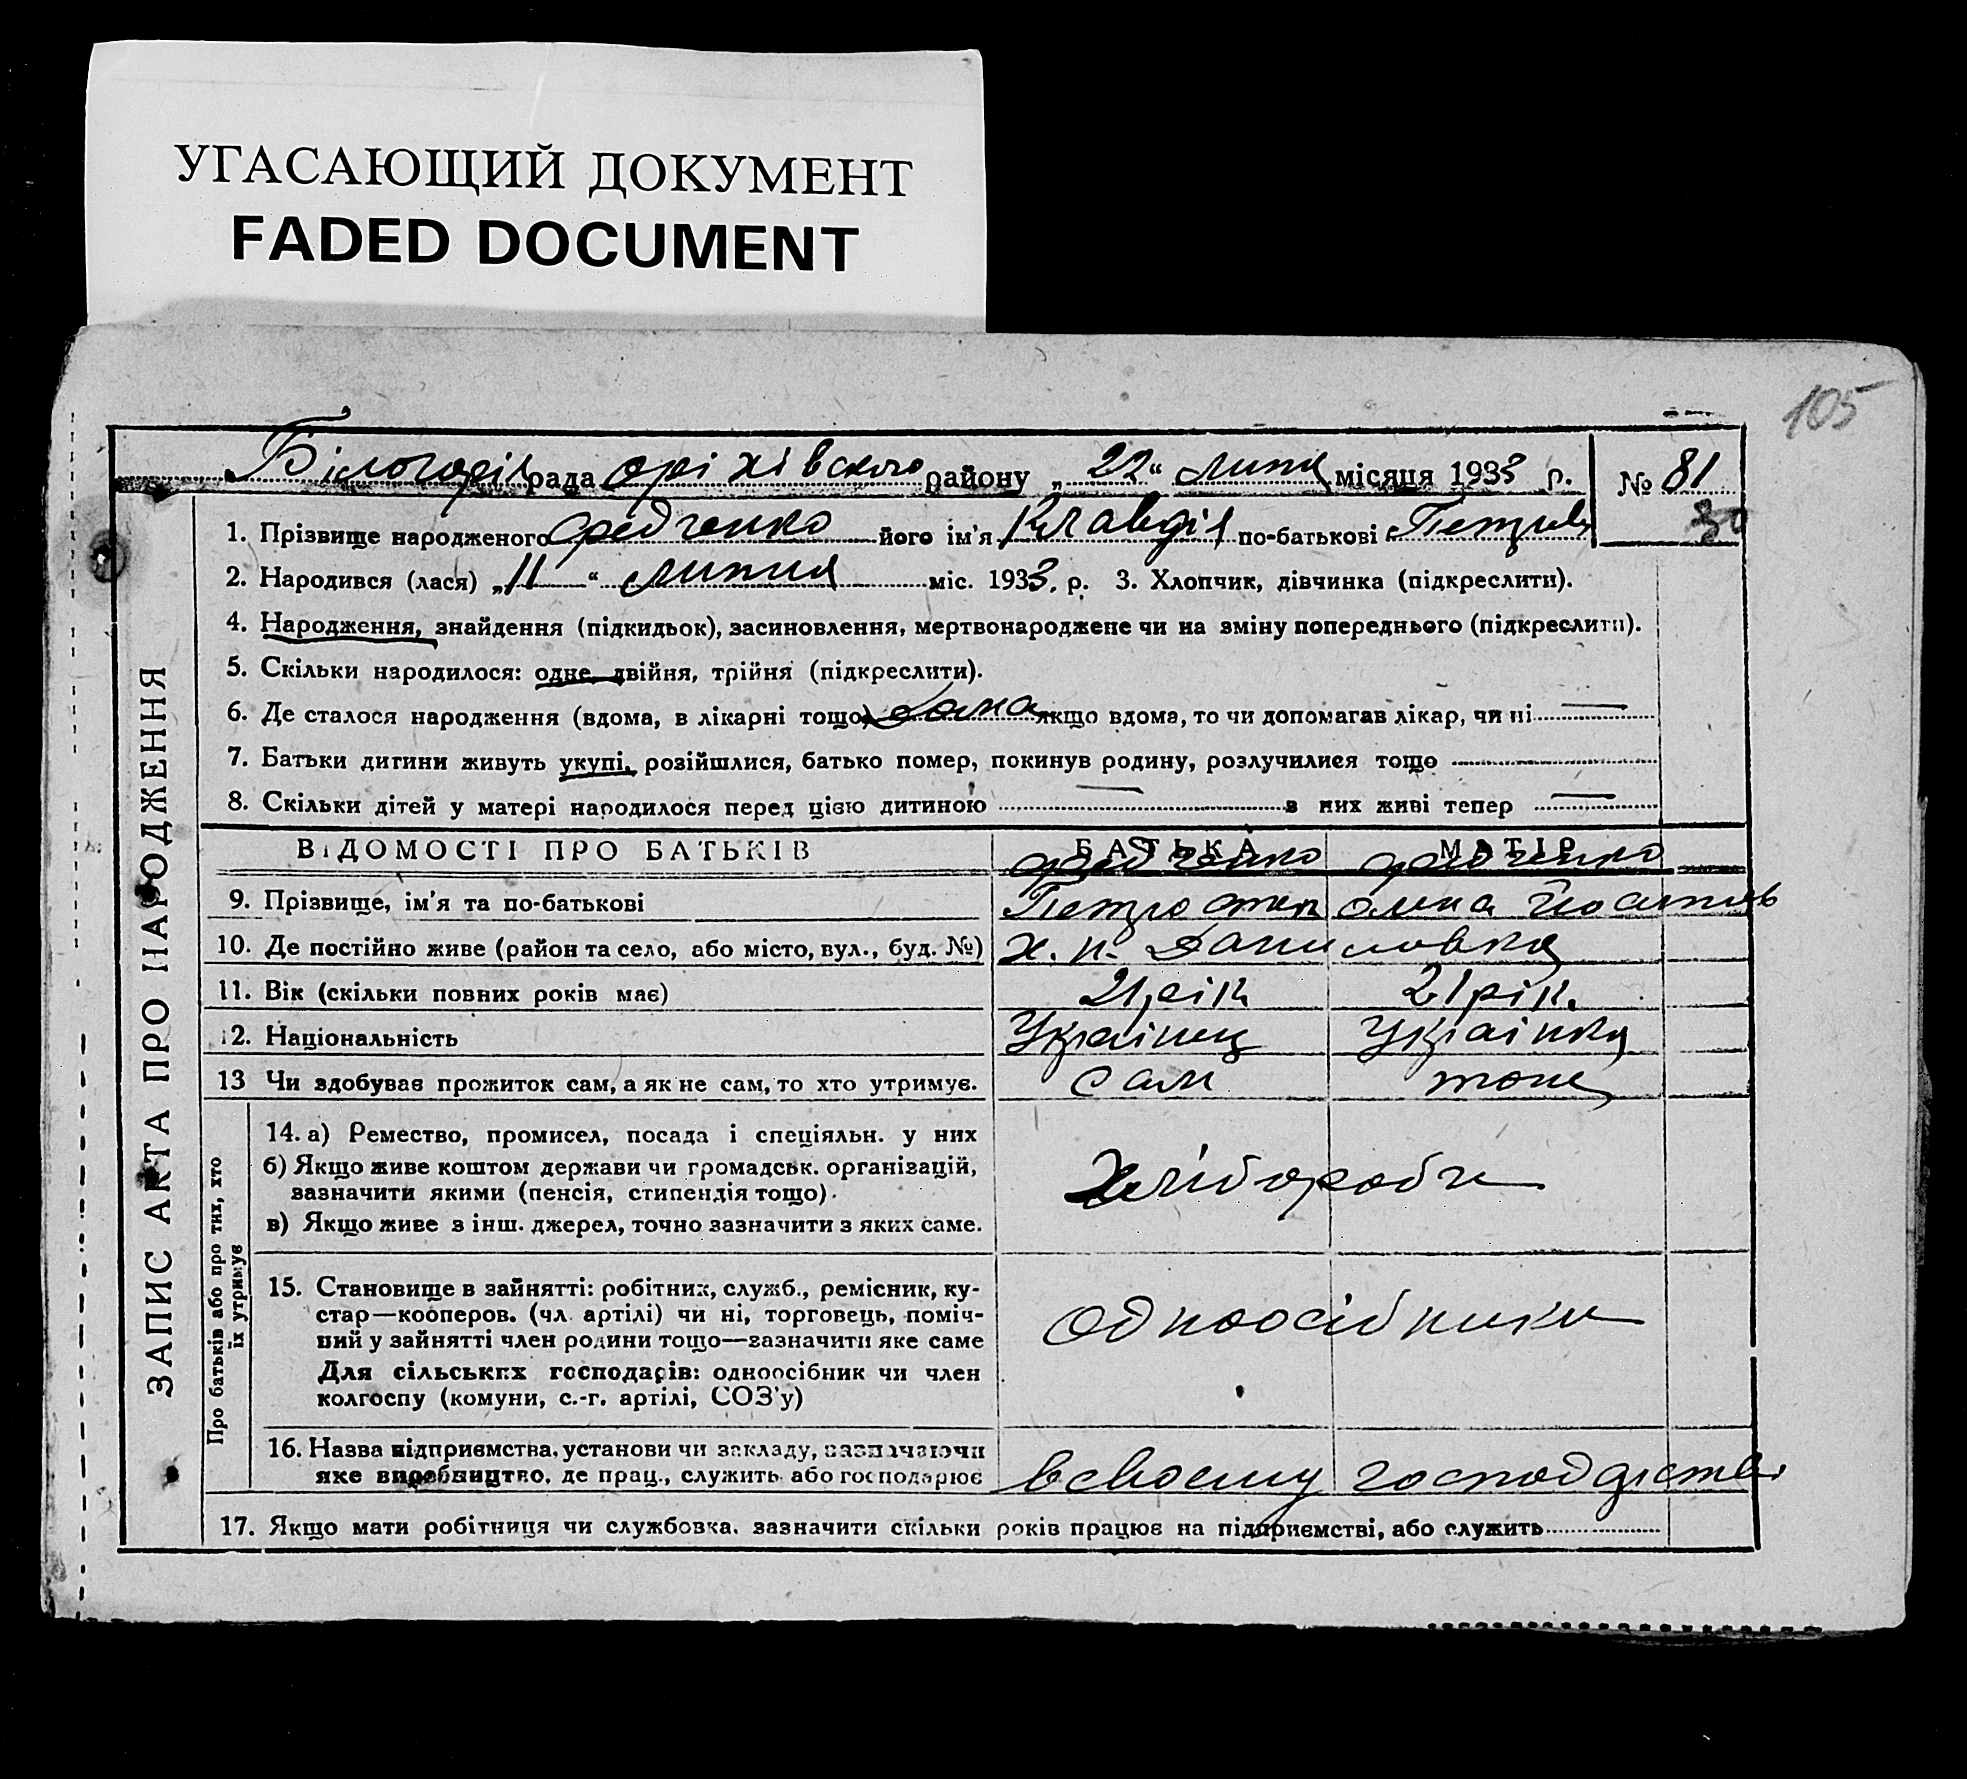 УГАСАЮЩИЙ ДОКУМЕНТ
FADED DOCUMENT
105
Білогорівс рада Оріхівского району „22“ Липня місяця 1933 р. № 81
30
1. Прізвище народженого Федченко його ім'я Клавдія по-батькові Петрівн
2. Народився (лася) „11“ липня міс. 1933. р. 3. Хлопчик, дівчинка (підкреслити).
4. Народження, знайдення (підкидьок), засиновлення, мертвонароджене чи на зміну попереднього (підкреслити).
5. Скільки народилося: одне, двійня, трійня (підкреслити).
6. Де сталося народження (вдома, в лікарні тощо) дома якщо вдома, то чи допомагав лікар, чи ні —
7. Батьки дитини живуть укупі, розійшлися, батько помер, покинув родину, розлучилися тощо
8. Скільки дітей у матері народилося перед цією дитиною — з них живі тепер —
ЗАПИС АКТА ПРО НАРОДЖЕННЯ
ВІДОМОСТІ ПРО БАТЬКІВ БАТЬКА МАТІР
Федченко Федченко
9. Прізвище, ім'я та по-батькові Петро
10. Де постійно живе (район та село, або місто, вул., буд. №) х. н. Даниловка
11. Вік (скільки повних років має) 21 рік 21 рік.
12. Національність Українец Українка
13 Чи здобував прожиток сам, а як не сам, то хто утримує. сам тоже
Про батьків або про тих, хто
їх утримує
14. а) Ремество, промисел, посада і спеціяльн. у них
б) Якщо живе коштом держави чи громадськ. організацій,
зазначити якими (пенсія, стипендія тощо).
в) Якщо живе з інш. джерел, точно зазначити з яких саме.
Хлібороби
15. Становище в зайнятті: робітник, служб., ремісник, ку-
стар—кооперов. (чл. артілі) чи ні, торговець, поміч-
ний у зайнятті член родини тощо—зазначити яке саме
Для сільських господарів: одноосібник чи член
колгоспу (комуни, с.-г. артілі, СОЗ'у)
одноосібники
16. Назва підприємства, установи чи закладу, зазначаючи
яке виробництво, де прац., служить або господарює
в своему господарстві
17. Якщо мати робітниця чи службовка, зазначити скільки років працює на підприємстві, або служить